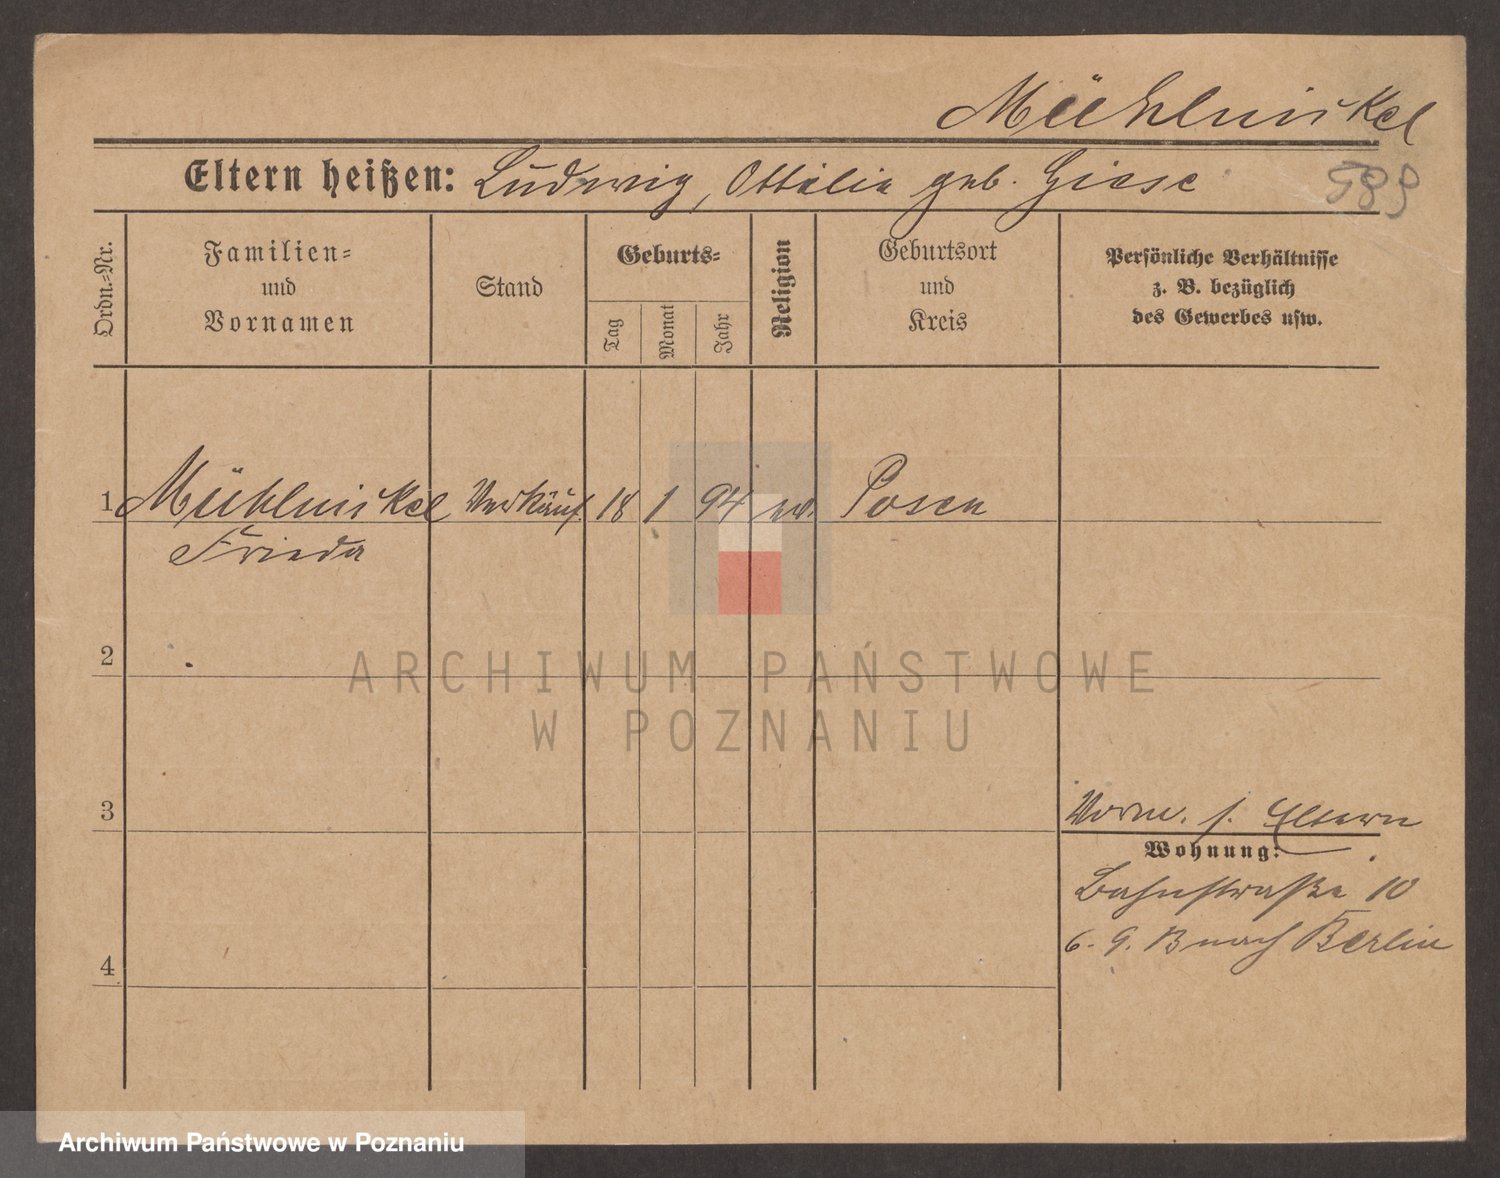 Mühlnickel
Eltern heißen: Ludwig, Ottilie geb. Giese
589
Ordn.-Nr.
Familien-
und
Vornamen
Stand
Geburts-
Tag
Monat
Jahr
Religion
Geburtsort
und
Kreis
Persönliche Verhältnisse
z. B. bezüglich
des Gewerbes usw.
1 Mühlnickel Verkäuf. 18 1 94 ev. Posen
Frieda
2
ARCHIWUM PAŃSTWOWE
W POZNANIU
3
Vorm. s. Eltern
Wohnung:
Bahnstraße 10
6. 9. 13 nach Berlin
4
Archiwum Państwowe w Poznaniu